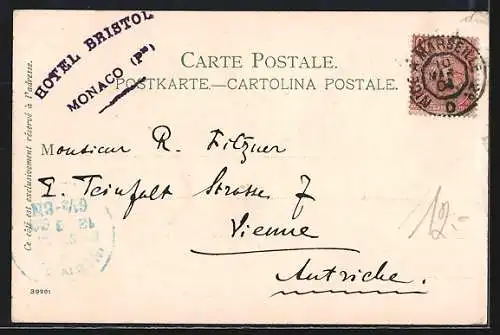 HOTEL BRISTOL
MONACO (Pté)
CARTE POSTALE.
POSTKARTE.—CARTOLINA POSTALE.
MARSEILLE
10
04
Ce côté est exclusivement réservé à l'adresse.
Monsieur R. Filzner
I. Teinfalt Strasse 7
Vienne
Autriche.
12.-
12 3
6½-8N
39201